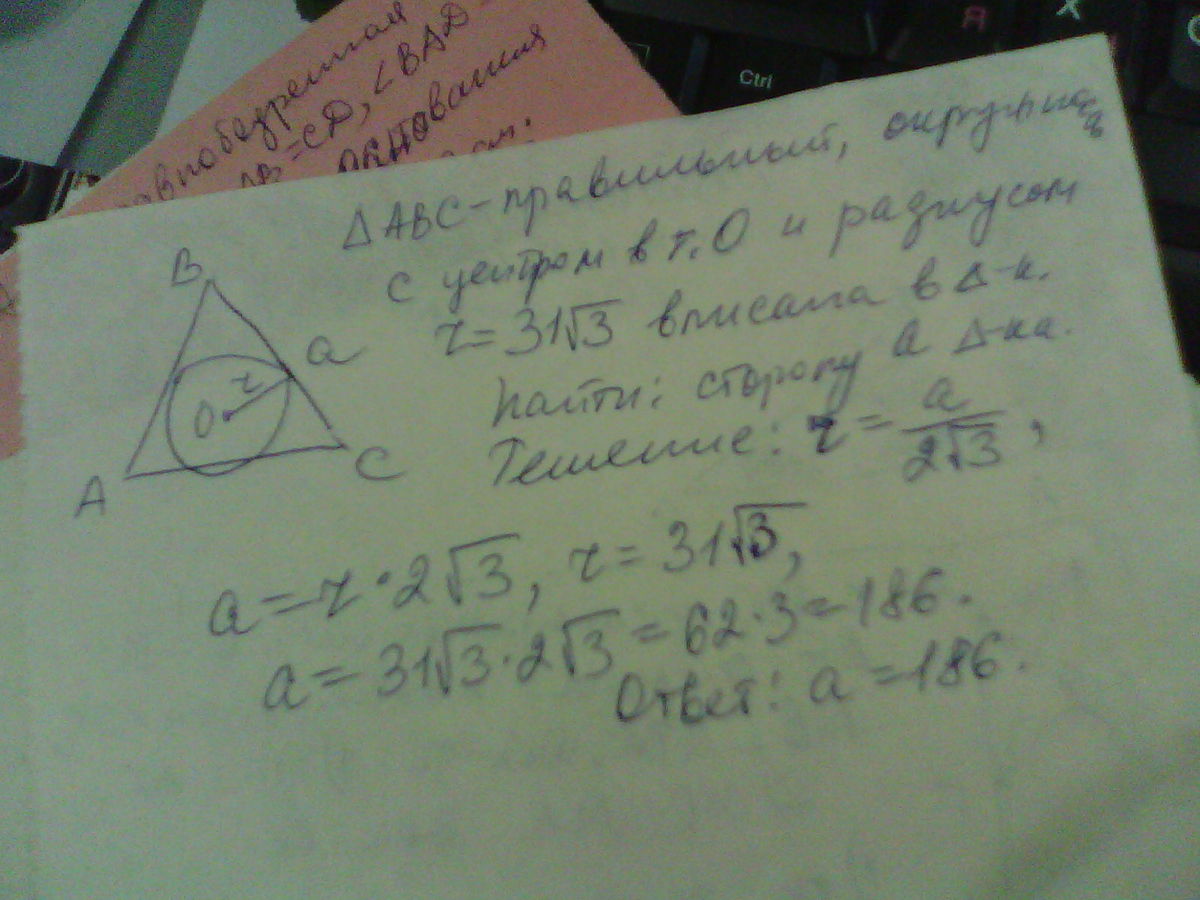 Ctrl
Я
X
АВ=CD, ∠BAD
основания
ΔАВС-правильный, окружность
с центром в т. О и радиусом
r=31√3 вписана в Δ-к.
Найти: сторону a Δ-ка.
Решение: r = a/2√3,
B
a
r
O
A
C
a=r·2√3, r=31√3,
a=31√3·2√3=62·3=186.
Ответ: a=186.